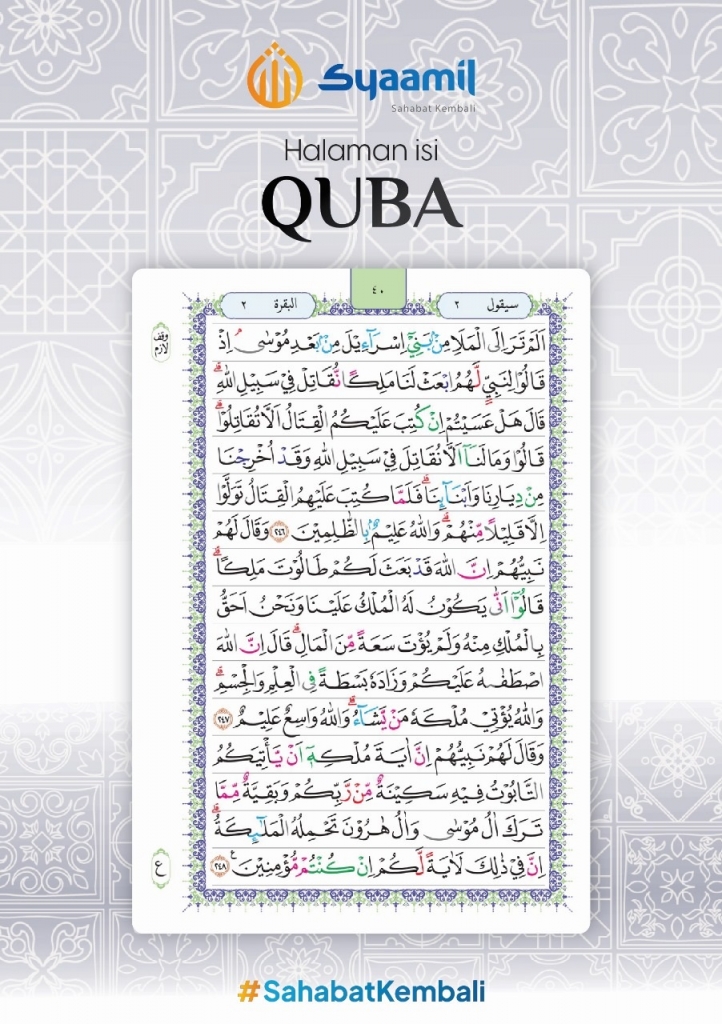 Syaamil
Sahabat Kembali
Halaman isi
QUBA
٤٠
سيقول ٢
البقرة ٢
وقف لازم
اَلَمْ تَرَ اِلَى الْمَلَاِ مِنْۢ بَنِيْٓ اِسْرَاۤءِيْلَ مِنْۢ بَعْدِ مُوْسٰىۘ اِذْ
قَالُوْا لِنَبِيٍّ لَّهُمُ ابْعَثْ لَنَا مَلِكًا نُّقَاتِلْ فِيْ سَبِيْلِ اللّٰهِ ۗ
قَالَ هَلْ عَسَيْتُمْ اِنْ كُتِبَ عَلَيْكُمُ الْقِتَالُ اَلَّا تُقَاتِلُوْا ۗ
قَالُوْا وَمَا لَنَآ اَلَّا نُقَاتِلَ فِيْ سَبِيْلِ اللّٰهِ وَقَدْ اُخْرِجْنَا
مِنْ دِيَارِنَا وَاَبْنَاۤىِٕنَا ۗ فَلَمَّا كُتِبَ عَلَيْهِمُ الْقِتَالُ تَوَلَّوْا
اِلَّا قَلِيْلًا مِّنْهُمْ ۗ وَاللّٰهُ عَلِيْمٌۢ بِالظّٰلِمِيْنَ ٢٤٦ وَقَالَ لَهُمْ
نَبِيُّهُمْ اِنَّ اللّٰهَ قَدْ بَعَثَ لَكُمْ طَالُوْتَ مَلِكًا ۗ
قَالُوْٓا اَنّٰى يَكُوْنُ لَهُ الْمُلْكُ عَلَيْنَا وَنَحْنُ اَحَقُّ
بِالْمُلْكِ مِنْهُ وَلَمْ يُؤْتَ سَعَةً مِّنَ الْمَالِ ۗ قَالَ اِنَّ اللّٰهَ
اصْطَفٰىهُ عَلَيْكُمْ وَزَادَهٗ بَسْطَةً فِى الْعِلْمِ وَالْجِسْمِ ۗ
وَاللّٰهُ يُؤْتِيْ مُلْكَهٗ مَنْ يَّشَاۤءُ ۗ وَاللّٰهُ وَاسِعٌ عَلِيْمٌ ٢٤٧
وَقَالَ لَهُمْ نَبِيُّهُمْ اِنَّ اٰيَةَ مُلْكِهٖٓ اَنْ يَّأْتِيَكُمُ
التَّابُوْتُ فِيْهِ سَكِيْنَةٌ مِّنْ رَّبِّكُمْ وَبَقِيَّةٌ مِّمَّا
تَرَكَ اٰلُ مُوْسٰى وَاٰلُ هٰرُوْنَ تَحْمِلُهُ الْمَلٰۤىِٕكَةُ ۗ
اِنَّ فِيْ ذٰلِكَ لَاٰيَةً لَّكُمْ اِنْ كُنْتُمْ مُّؤْمِنِيْنَ ࣖ ٢٤٨
ع
#SahabatKembali